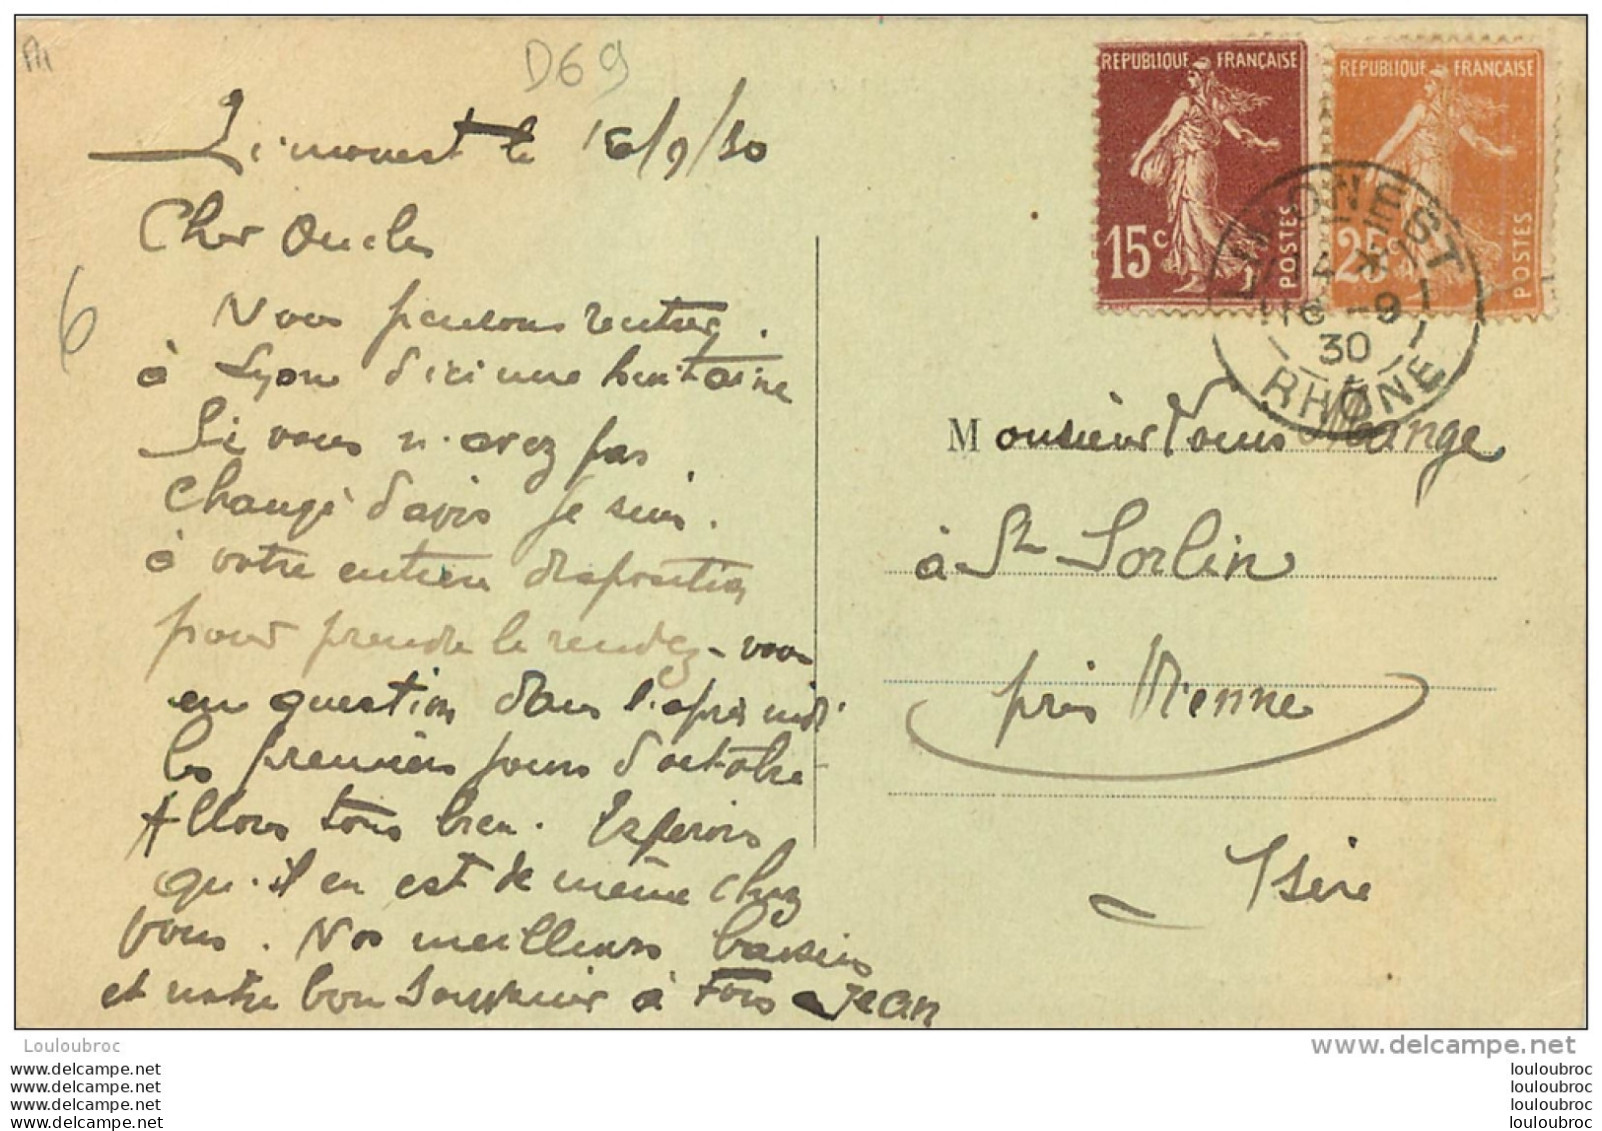 D69
Limonest le 16/9/30
Cher Oncle
Nous pensons rentrer
à Lyon d'ici une huitaine
Si vous n'avez pas
changé d'avis je suis
à votre entière disposition
pour prendre le rendez-vous
en question dans l'après midi
les premiers jours d'octobre
Allons tous bien. Espérons
qu'il en est de même chez
vous. Nos meilleurs baisers
et notre bon souvenir à tous Jean
6
REPUBLIQUE FRANÇAISE
15c POSTES
REPUBLIQUE FRANÇAISE
25c POSTES
LIMONEST
14 *
16 -9
30
RHÔNE
Monsieur Louis Mange
à St Sorlin
près Vienne
Isère
Louloubroc
www.delcampe.net
www.delcampe.net
www.delcampe.net
www.delcampe.net
www.delcampe.net
louloubroc
louloubroc
louloubroc
louloubroc